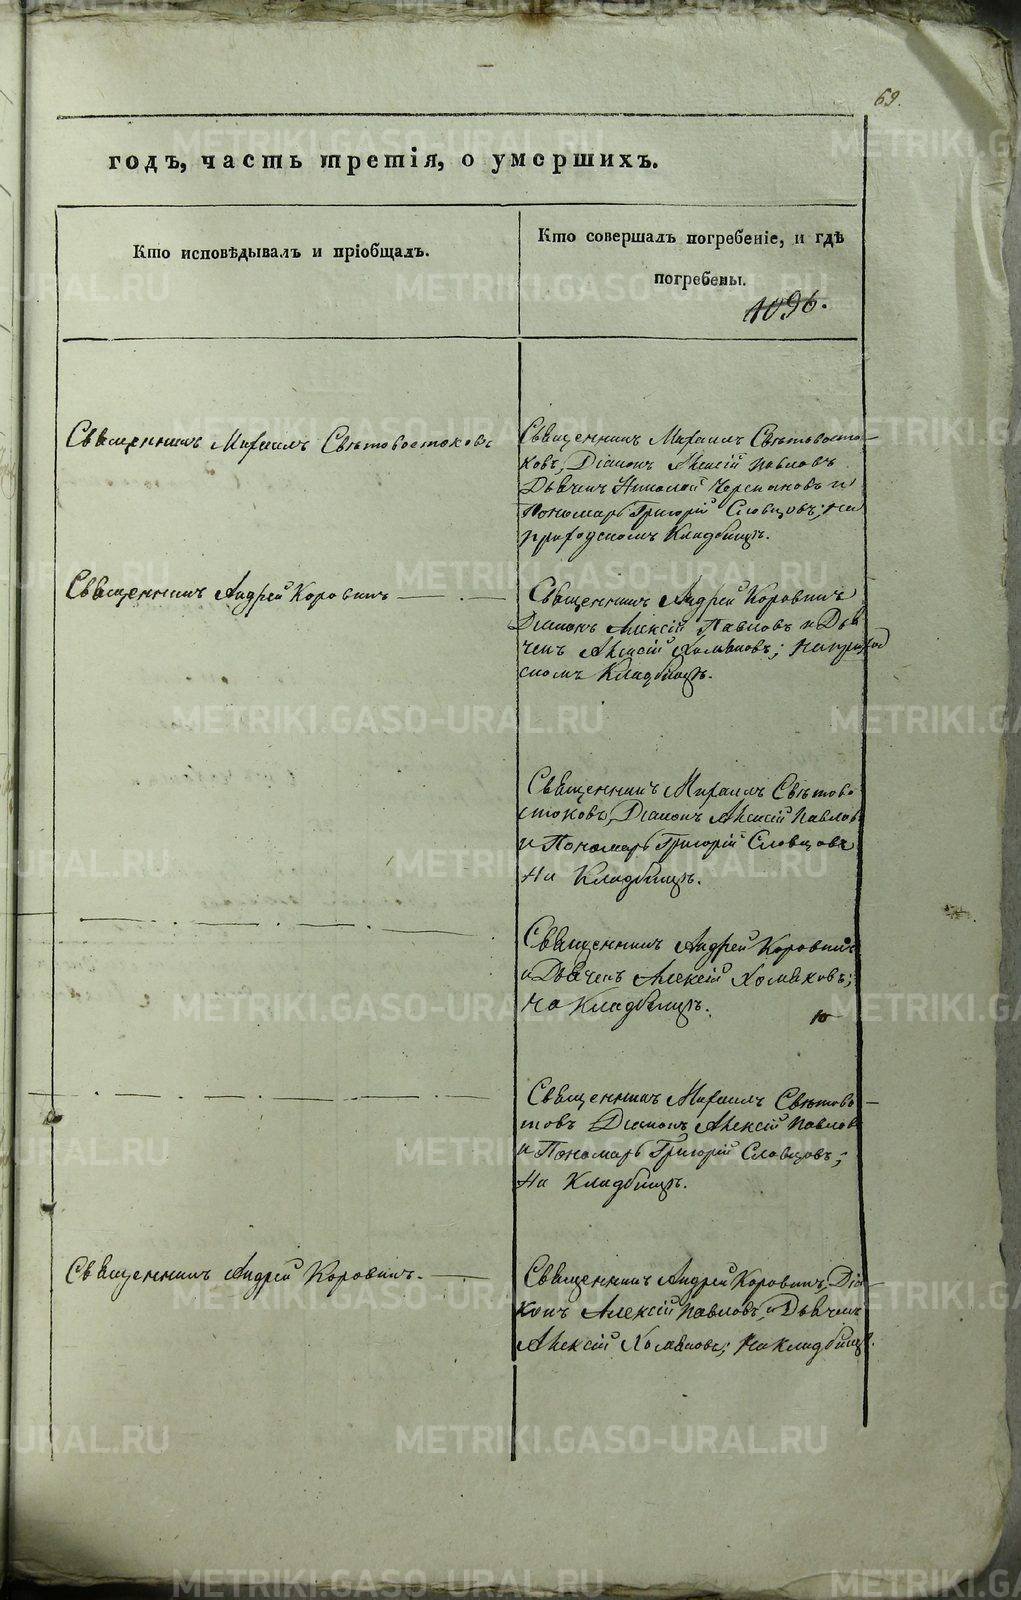 69.
годъ, часть третія, о умершихъ.
Кто исповѣдывалъ и пріобщалъ.
Кто совершалъ погребеніе, и гдѣ
погребены.
1096.
Священникъ Михаилъ Свѣтовостоковъ
Священникъ Михаилъ Свѣтовосто-
ковъ, Діаконъ Алексій Павловъ
Дьячекъ Николай Черемновъ и
Пономарь Григорій Словцовъ; на
приходскомъ Кладбищѣ.
Священникъ Андрей Коровинъ
Священникъ Андрей Коровинъ
Діаконъ Алексій Павловъ и Дья
чекъ Алексій Хомяковъ; на приход
скомъ Кладбищѣ.
Священникъ Михаилъ Свѣтово
стоковъ, Діаконъ Алексій Павловъ
и Пономарь Григорій Словцовъ
На Кладбищѣ.
Священникъ Андрей Коровинъ
и Дьячекъ Алексій Хомяковъ;
на Кладбищѣ.
Священникъ Михаилъ Свѣтово-
товъ Діаконъ Алексій Павловъ
и Пономарь Григорій Словцовъ;
На Кладбищѣ.
Священникъ Андрей Коровинъ.
Священникъ Андрей Коровинъ, Діа-
конъ Алексій Павловъ, и Дьячекъ
Алексій Хомяковъ; на кладбищѣ.
METRIKI.GASO-URAL.RU